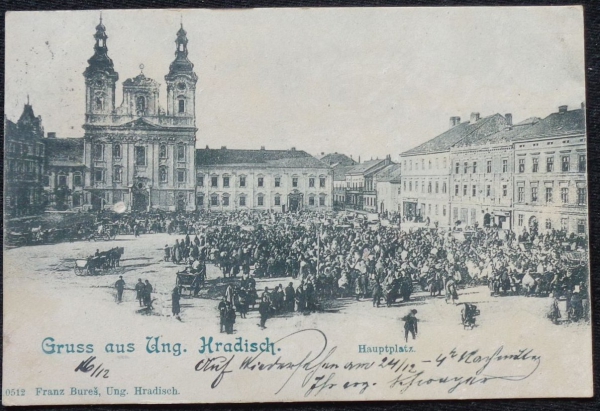 Gruss aus Ung. Hradisch.
Hauptplatz.
16/12 Auf Wiedersehen am 24/12 - 4 Uhr Nachmittag
Ihr erg. Schwager
0512 Franz Bureš, Ung. Hradisch.